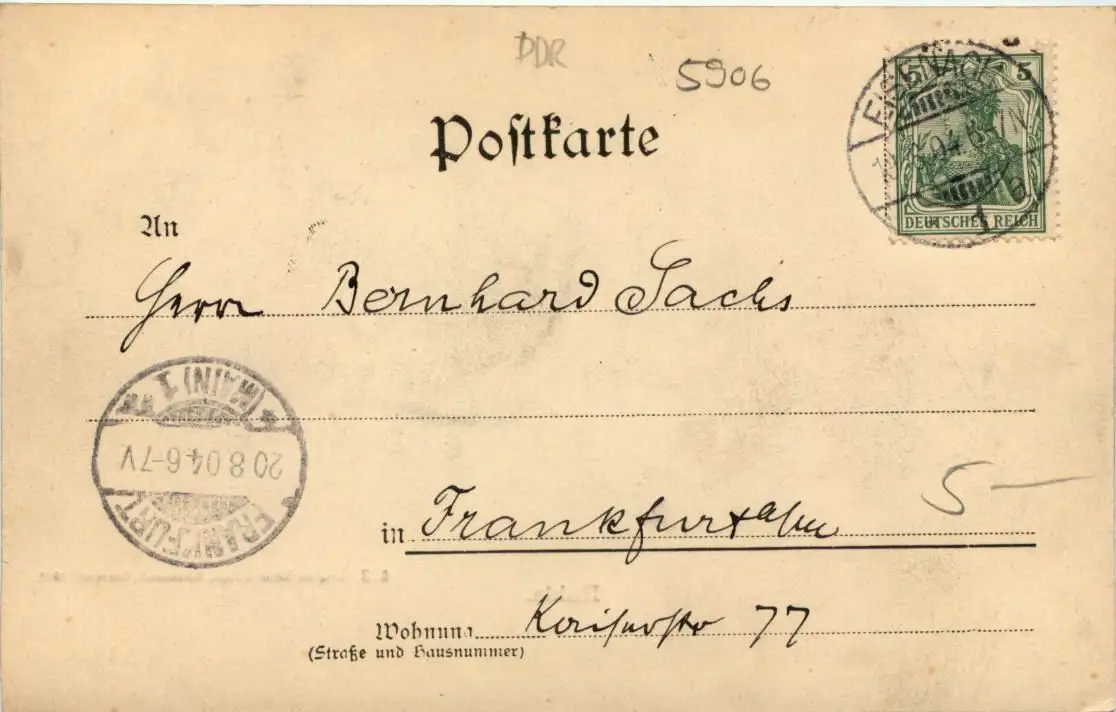 DDR
5906
EISENACH
5 5
04.6-7N
1 a
DEUTSCHES REICH
Postkarte
An
Herrn Bernhard Sachs
FRANKFURT (MAIN) 1
20 8 04 6-7V
in Frankfurt a/m
5 —
Wohnung Kaiserstr 77
(Straße und Hausnummer)